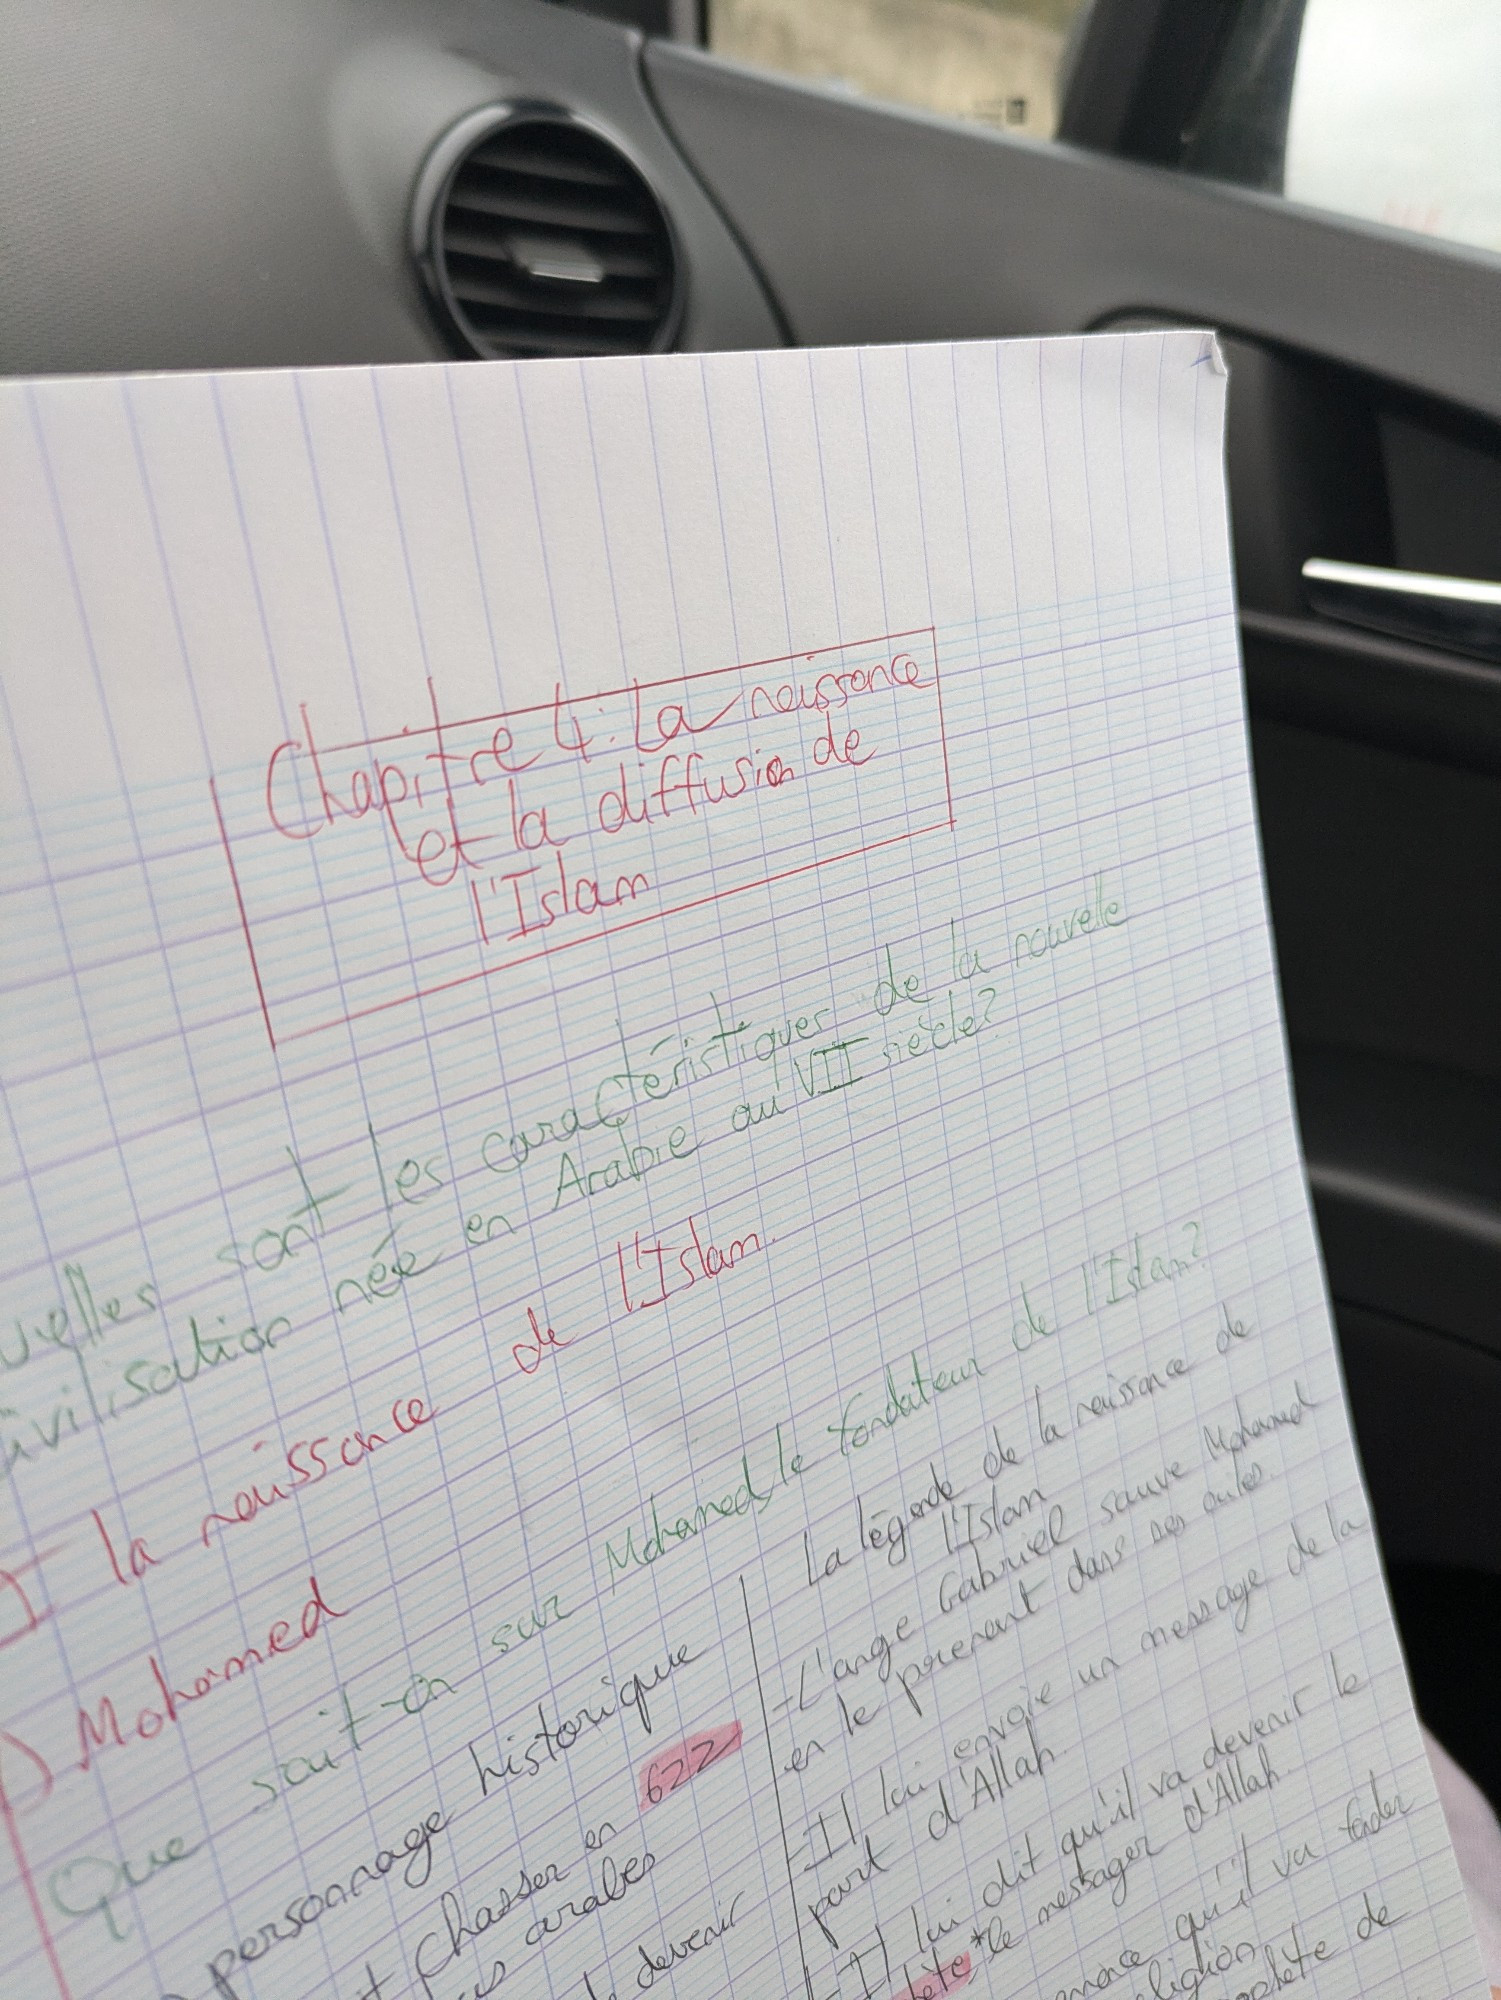 Chapitre 4: La naissance
et la diffusion de
l'Islam
uelles sont les caractéristiques de la nouvelle
ivilisation née en Arabie au VII siècle?
I- la naissance de l'Islam.
) Mohamed
Que sait-on sur Mohamed, le fondateur de l'Islam?
personnage historique
t chasser en 622
s arabes
devenir
La légende de la naissance de
l'Islam
-L'ange Gabriel sauve Mohamed
en le prenant dans ses ailes.
-Il lui envoie un message de la
part d'Allah.
-Il lui dit qu'il va devenir le
ète,* le messager d'Allah.
qu'il va fonder
ligion
ophète de